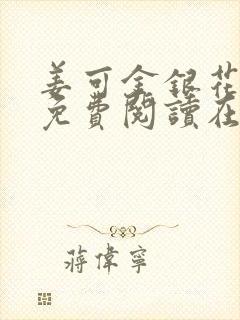 姜可金銀花
免費閱讀在
蔣偉寧